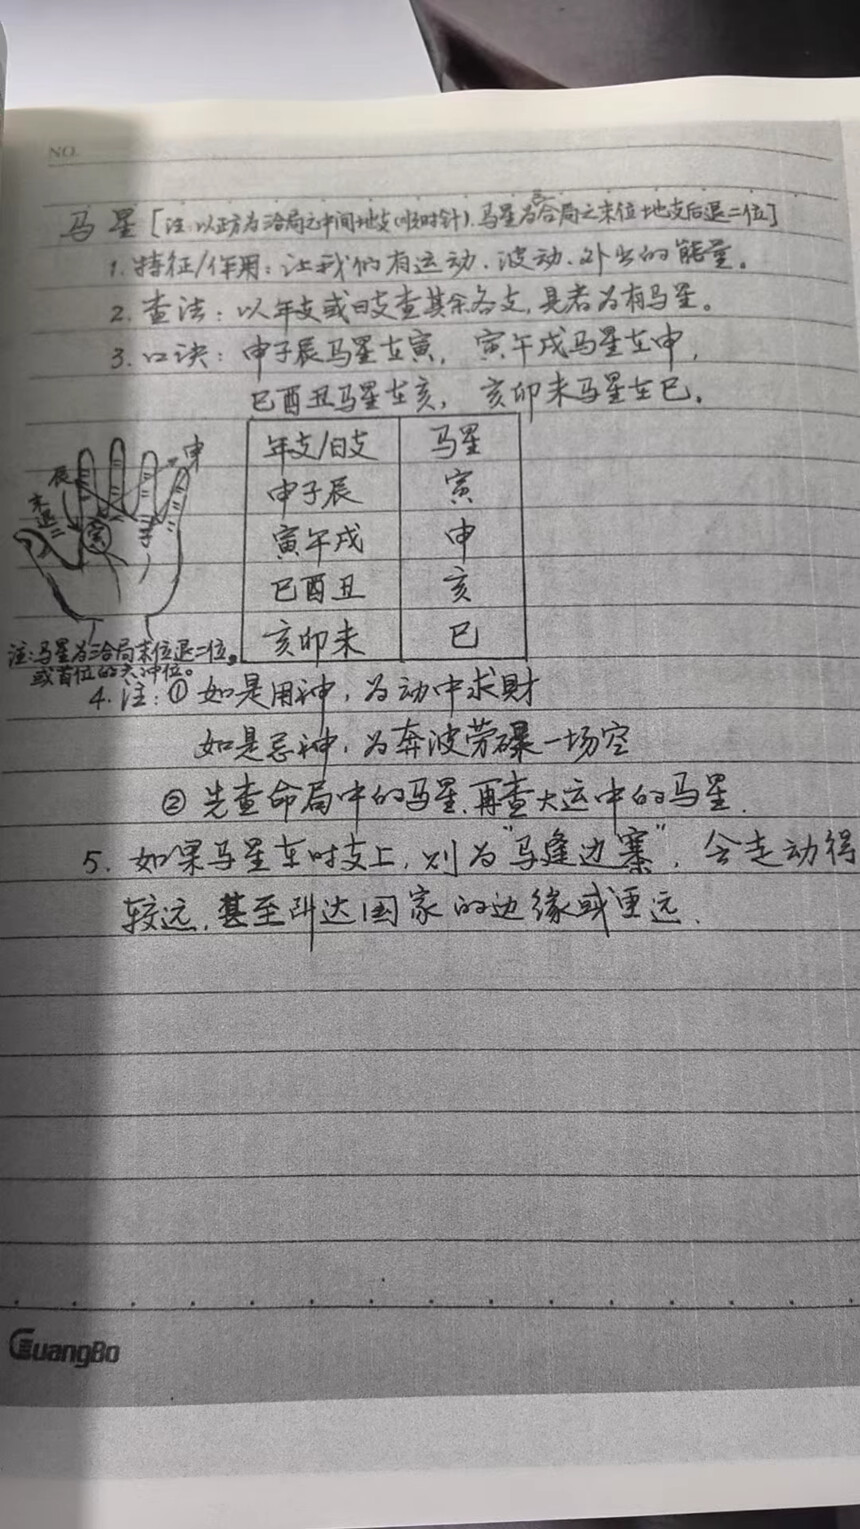 NO.
马星[注:以正方为三合局之中间地支(顺时针).马星为三合局之末位地支后退二位]
1.特征/作用:让我们有运动、波动、外出的能量。
2.查法:以年支或日支查其余各支,见者为有马星。
3.口诀:申子辰马星在寅,寅午戌马星在申,
巳酉丑马星在亥,亥卯未马星在巳.
年支/日支 马星
申子辰 寅
寅午戌 申
巳酉丑 亥
亥卯未 巳
申
辰
末退二
寅
子
注:马星为三合局末位退二位。
或首位的六冲位。
4.注:①如是用神,为动中求財
如是忌神,为奔波劳碌一场空
②先查命局中的马星,再查大运中的马星.
5.如果马星在时支上,则为"马逢边寨",会走动得
较远,甚至到达国家的边缘或更远.
GuangBo